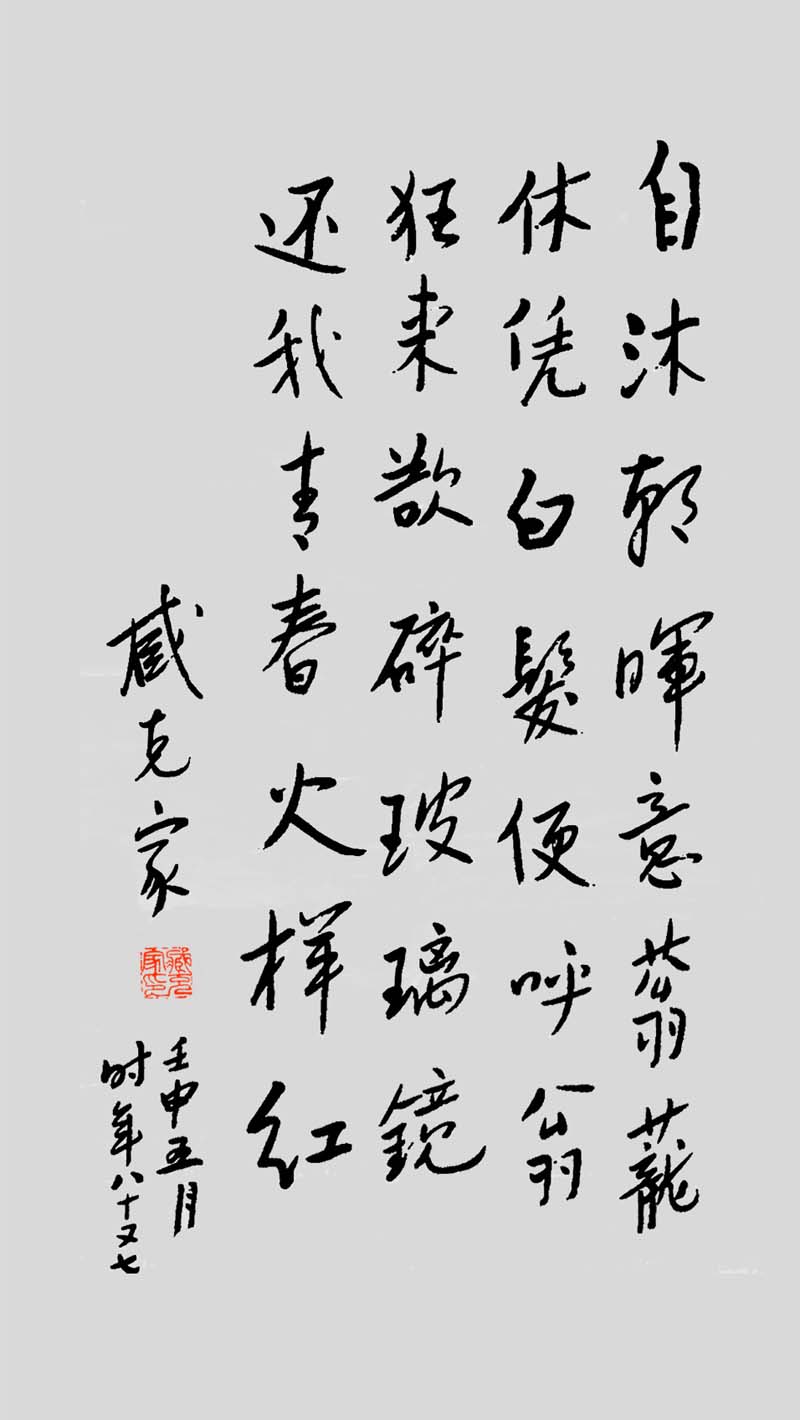 自沐朝晖意蓊蘢
休凭白髮便呼翁
狂来欲碎玻璃鏡
还我青春火样红
臧克家
臧克家印
壬申五月
时年八十又七